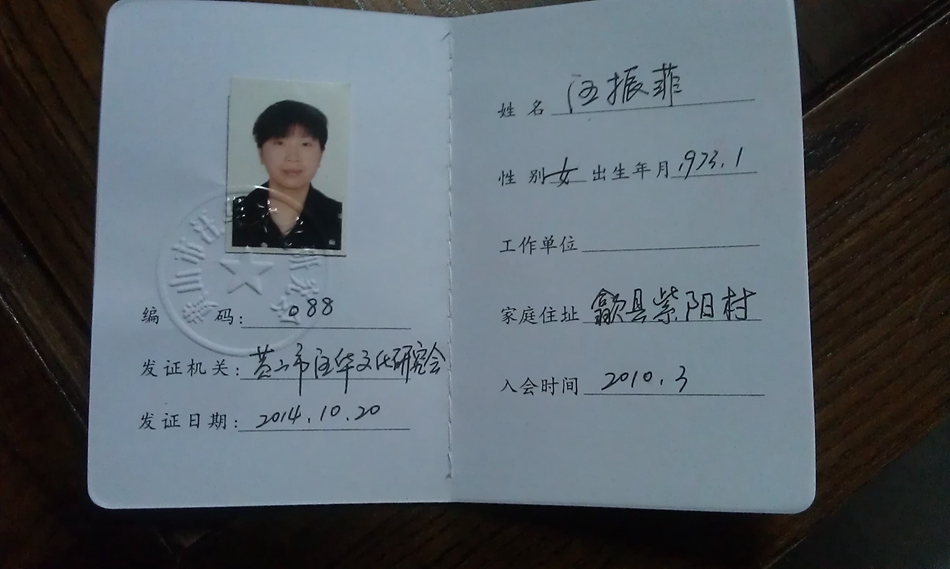 编 码: 088
发证机关: 黄山市汪华文化研究会
发证日期: 2014.10.20
姓名 汪振菲
性别 女 出生年月 1973.1
工作单位
家庭住址 歙县紫阳村
入会时间 2010.3